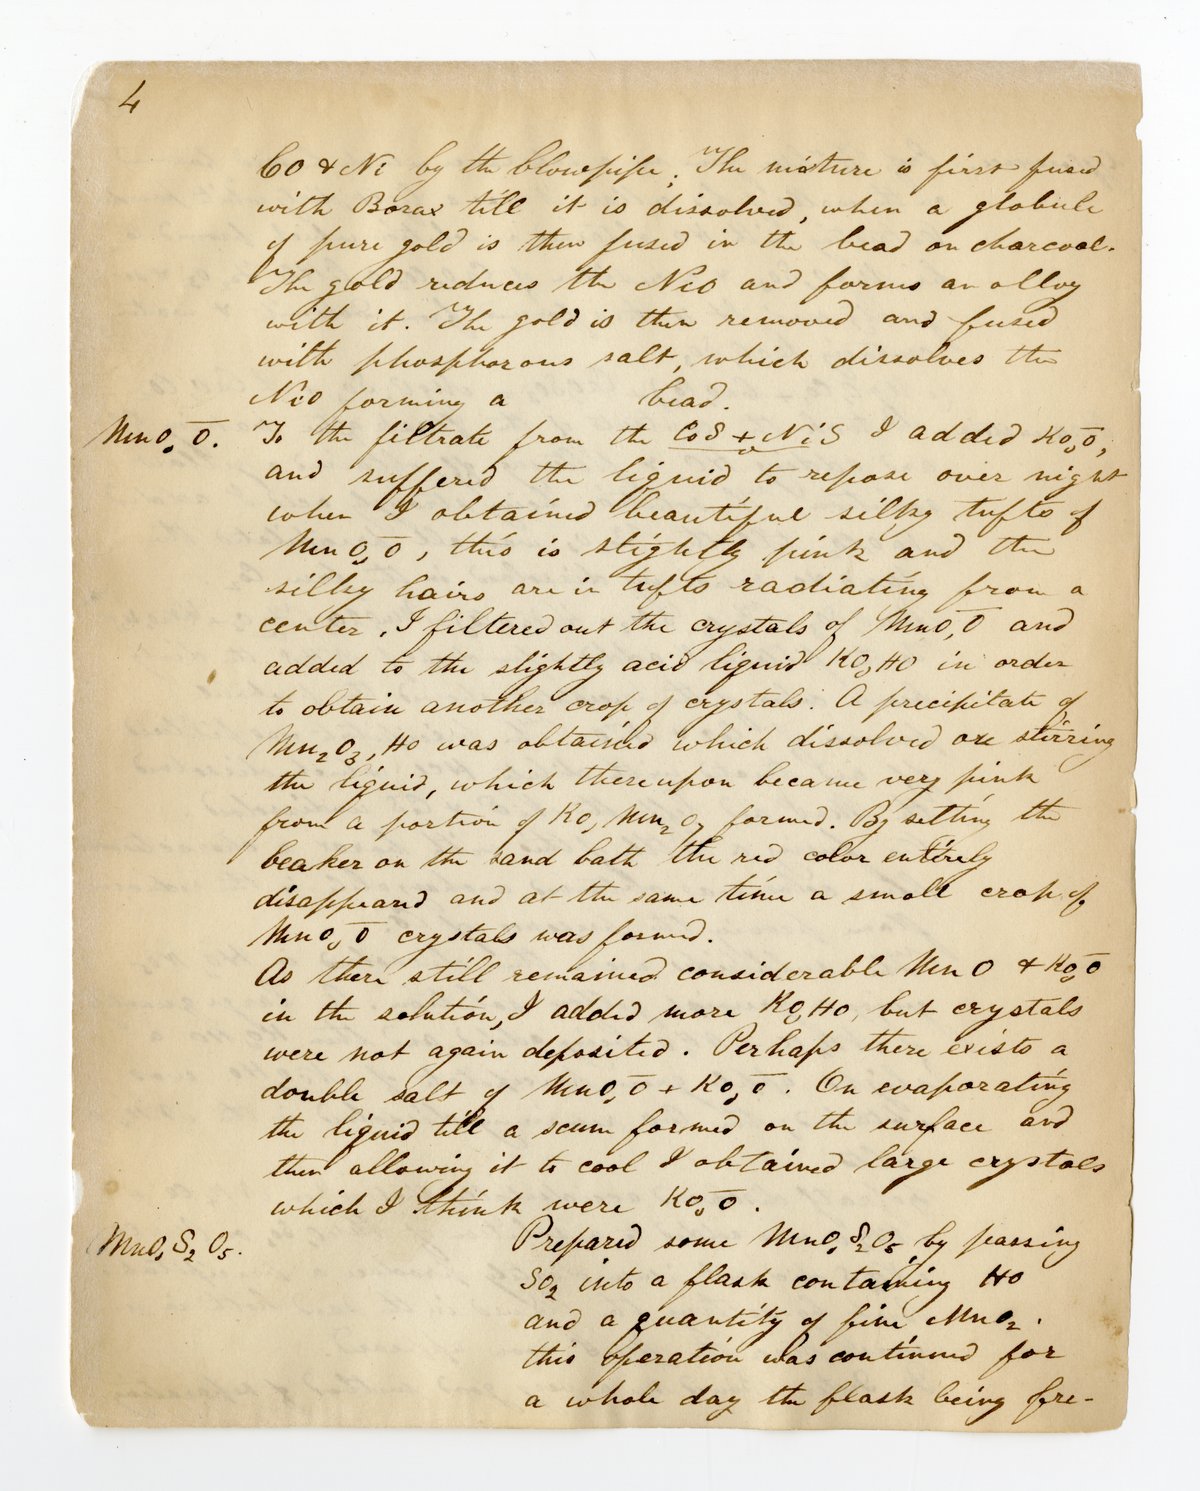 4
CO & Ni by the blowpipe. The mixture is first fused
with Borax till it is dissolved, when a globule
of pure gold is then fused in the bead on charcoal.
The gold reduces the NiO and forms an alloy
with it. The gold is then removed and fused
with phosphorous salt, which dissolves the
NiO forming a bead.
MnO, O̅.
To the filtrate from the CoS + NiS I added KO, O̅,
and suffered the liquid to repose over night
when I obtained beautiful silky tufts of
MnO, O̅, this is slightly pink and the
silky hairs are in tufts radiating from a
center. I filtered out the crystals of MnO, O̅ and
added to the slightly acid liquid KO, HO in order
to obtain another crop of crystals. A precipitate of
Mn₂O₃, HO was obtained which dissolved on stirring
the liquid, which thereupon became very pink
from a portion of KO, Mn₂O₇ formed. By setting the
beaker on the sand bath the red color entirely
disappeared and at the same time a small crop of
MnO, O̅ crystals was formed.
As there still remained considerable MnO & KO, O̅
in the solution, I added more KO, HO, but crystals
were not again deposited. Perhaps there exists a
double salt of MnO, O̅ + KO, O̅. On evaporating
the liquid till a scum formed on the surface and
then allowing it to cool I obtained large crystals
which I think were KO, O̅.
MnO, S₂O₅.
Prepared some MnO, S₂O₅ by passing
SO₂ into a flask containing HO
and a quantity of fine MnO₂.
this operation was continued for
a whole day the flask being fre-